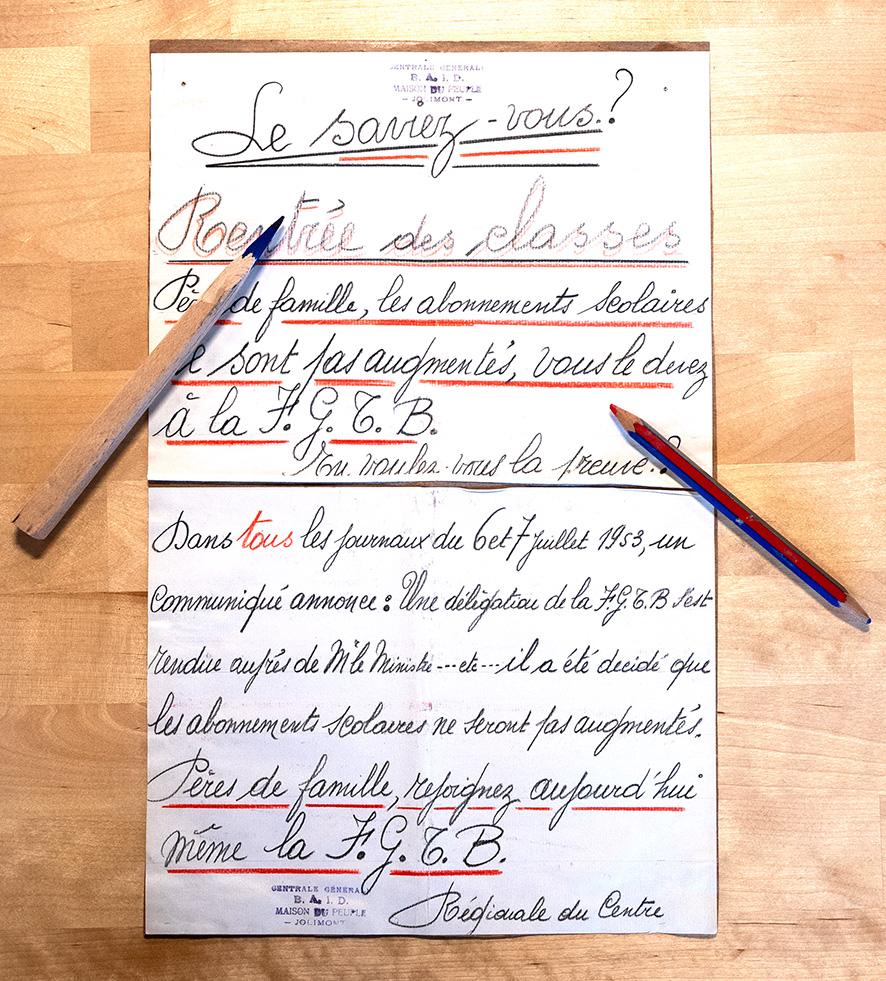 CENTRALE GENERALE
B. A. I. D.
MAISON DU PEUPLE
– JOLIMONT –
Le saviez-vous..?
Rentrée des classes
de famille, les abonnements scolaires
sont pas augmentés, vous le devez
à la F.G.T.B.
En voulez-vous la preuve..?
Dans tous les journaux du 6 et 7 juillet 1953, un
Communiqué annonce : Une délégation de la F.G.T.B s'est
rendue auprès de Mr le Ministre --- etc --- il a été decidé que
les abonnements scolaires ne seront pas augmentés.
Pères de famille, rejoignez aujourd'hui
même la F.G.T.B.
CENTRALE GÉNÉRA
B. A. I. D.
MAISON DU PEUPLE
– JOLIMONT –
Régionale du Centre